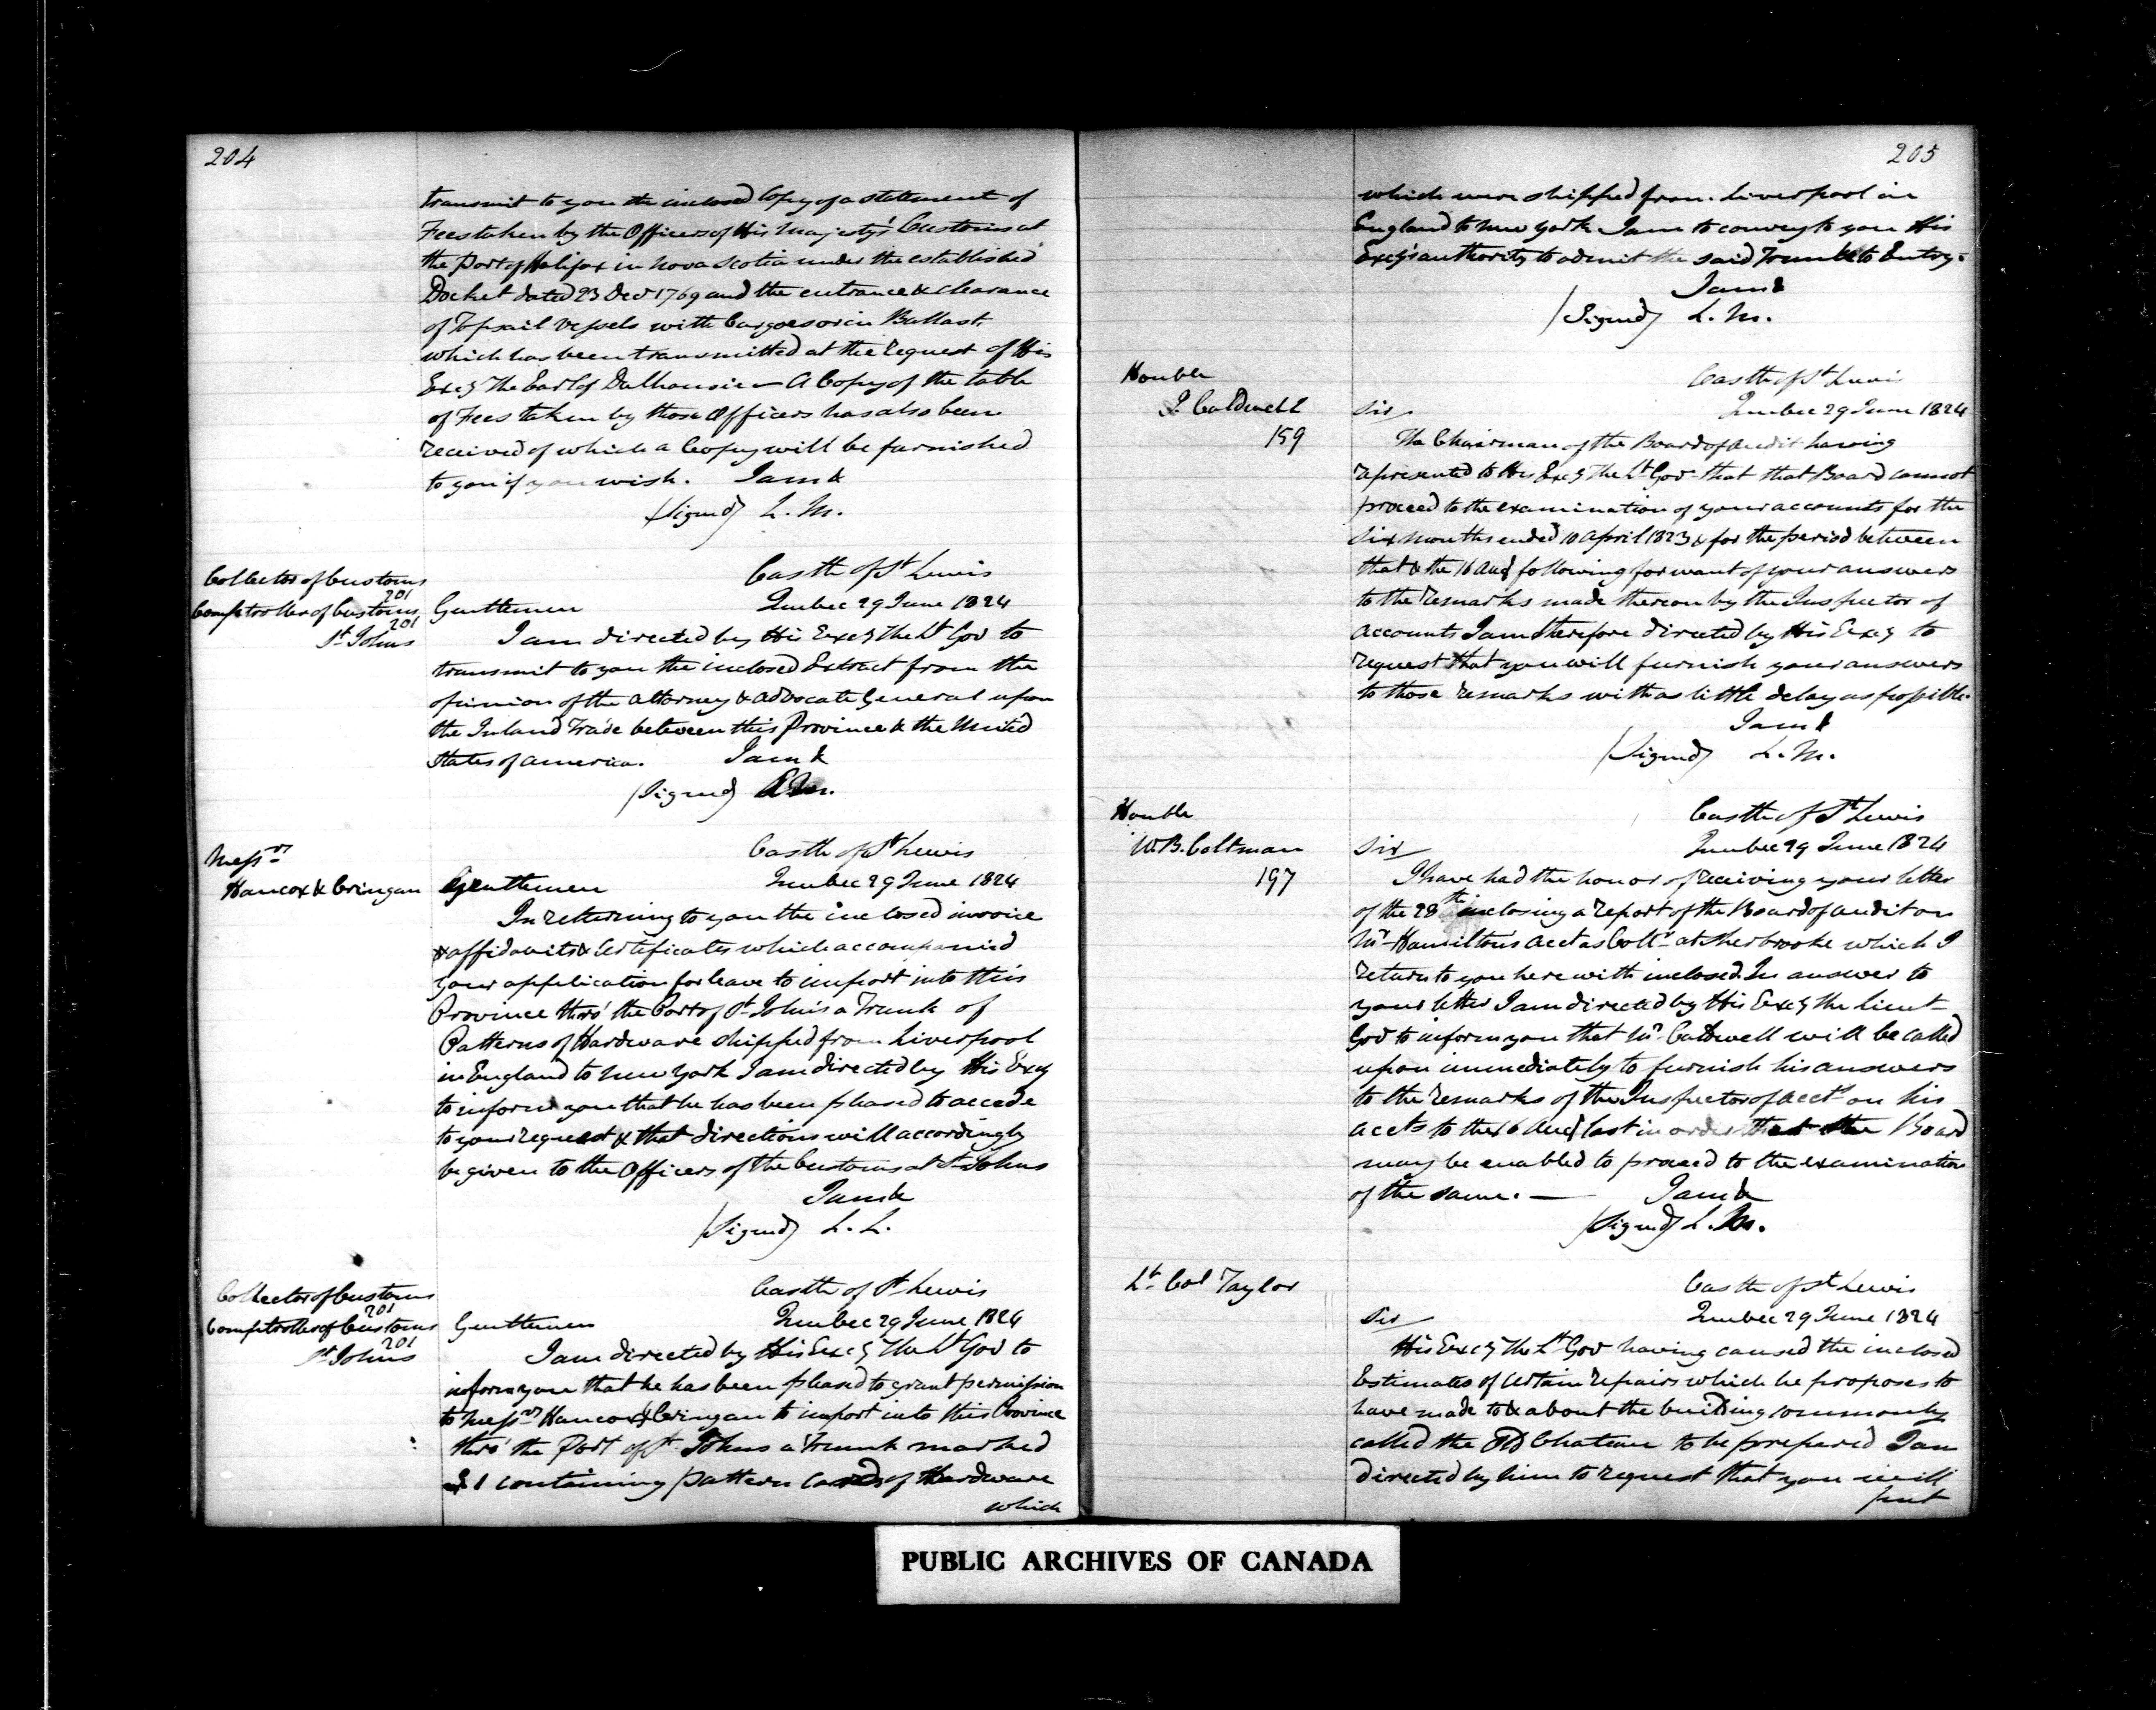 204
transmit to you the inclosed Copy of a statement of
Fees taken by the Officers of His Majesty's Customs at
the Port of Halifax in Nova Scotia under the established
Docket dated 23 Decr 1769 and the entrance & clearance
of Topsail Vessels with Cargoes or in Ballast.
which has been transmitted at the request of His
Excy The Earl of Dalhousie — A Copy of the table
of Fees taken by those Officers has also been
received of which a Copy will be furnished
to you if you wish. I am &
(Signed) L. M.
Collector of Customs
201
Comptroller of Customs
201
St Johns
Castle of St Lewis
Gentlemen Quebec 29 June 1824
I am directed by His Excy the Lt Gov to
transmit to you the inclosed Extract from the
opinion of the Attorney & Advocate General upon
the Inland Trade between this Province & the United
States of America. I am &
(Signed) L. M.
Messrs
Hancox & Cringan
Castle of St Lewis
Gentlemen Quebec 29 June 1824
In returning to you the inclosed invoice
& affidavits & Certificates which accompanied
your application for leave to import into this
Province thro' the Port of St John's a Trunk of
Patterns of Hardware shipped from Liverpool
in England to New York I am directed by His Excy
to inform you that he has been pleased to accede
to your request & that directions will accordingly
be given to the Officers of the Customs at St Johns
I am &
(Signed) L. L.
Collector of Customs
201
Comptroller of Customs
201
St Johns
Castle of St Lewis
Gentlemen Quebec 29 June 1824
I am directed by His Excy The Lt Gov to
inform you that he has been pleased to grant permission
to Messrs Hancox & Cringan to import into this Province
thro' the Port of St Johns a Trunk marked
1 containing pattern Cards of Hardware
which
205
which were shipped from Liverpool in
England to New York I am to convey to you His
Excy's authority to admit the said Trunk to Entry.
I am &
(Signed) L. M.
Honble
J. Caldwell
159
Castle of St Lewis
Sir Quebec 29 June 1824
The Chairman of the Board of Audit having
represented to His Excy The Lt Gov that that Board cannot
proceed to the examination of your accounts for the
six months ended 10 April 1823 & for the period between
that & the 16 Aug following for want of your answers
to the remarks made thereon by the Inspector of
Accounts I am therefore directed by His Excy to
request that you will furnish your answers
to those remarks with as little delay as possible.
I am &
(Signed) L. M.
Honble
W. B. Coltman
197
Castle of St Lewis
Sir Quebec 29 June 1824
I have had the honor of receiving your letter
of the 28th inclosing a report of the Board of Audit on
Mr Hamilton's Acct as Collr at Sherbrooke which I
return to you herewith inclosed. In answer to
your letter I am directed by His Excy the Lieut
Gov to inform you that Mr Caldwell will be called
upon immediately to furnish his answers
to the remarks of the Inspector of Acct on his
accts to the 16 Aug last in order that the Board
may be enabled to proceed to the examination
of the same. — I am &
(Signed) L. M.
Lt Col Taylor
Castle of St Lewis
Sir Quebec 29 June 1824
His Excy The Lt Gov having caused the inclosed
Estimates of certain repairs which he proposes to
have made to & about the building commonly
called the Old Chateau to be prepared I am
directed by him to request that you will
put
PUBLIC ARCHIVES OF CANADA